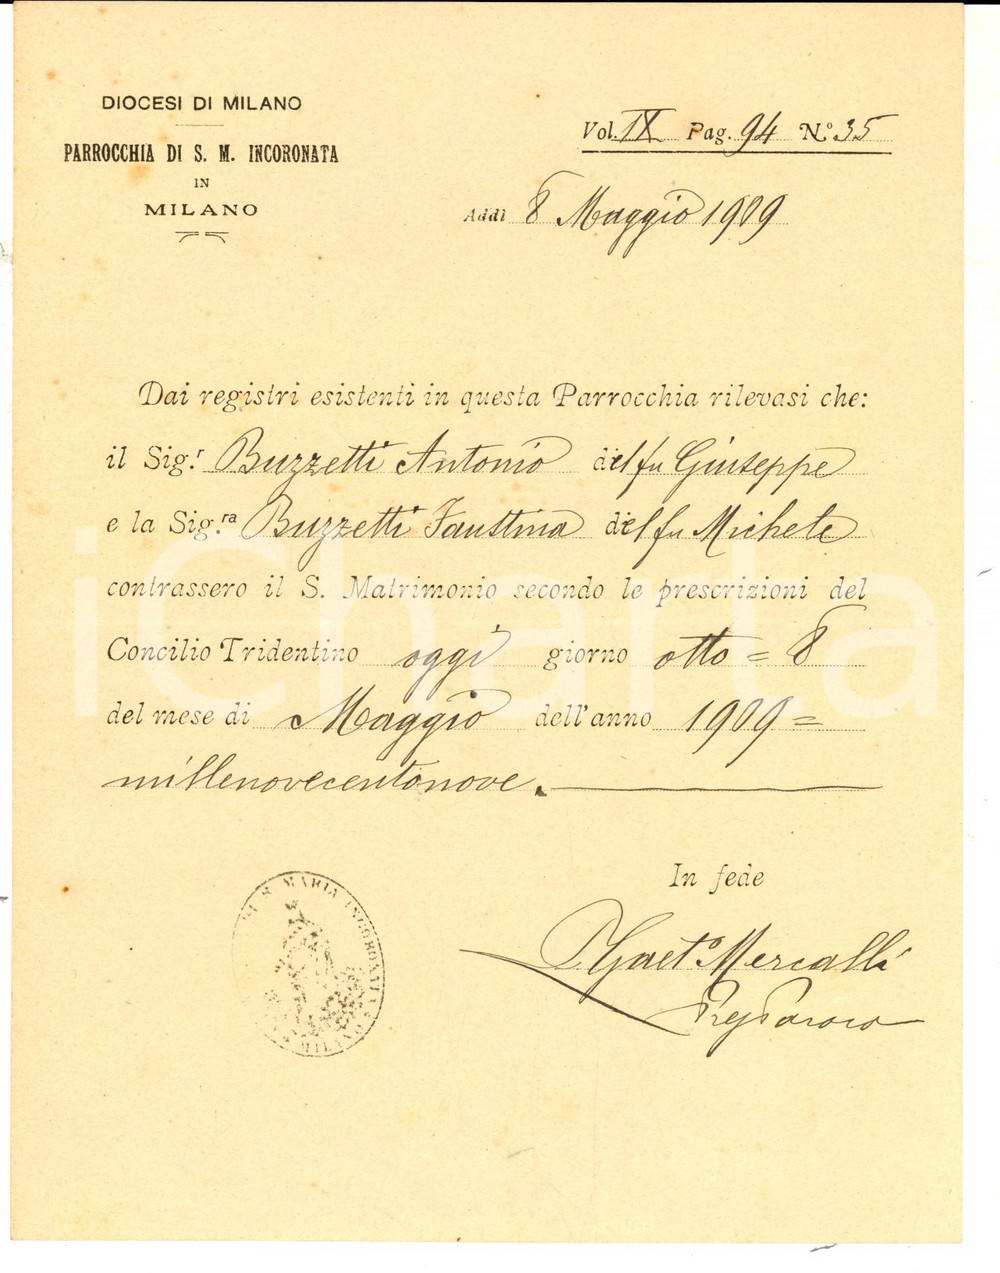 DIOCESI DI MILANO
PARROCCHIA DI S. M. INCORONATA
IN
MILANO
Vol. IX Pag. 94 N.º 35
Addì 8 Maggio 1909
Dai registri esistenti in questa Parrocchia rilevasi che:
il Sig.r Buzzetti Antonio del fu Giuseppe
e la Sig.ra Buzzetti Faustina del fu Michele
contrassero il S. Matrimonio secondo le prescrizioni del
Concilio Tridentino oggi giorno otto = 8
del mese di Maggio dell'anno 1909 =
millenovecentonove.
In fede
Gaet.º Mercalli
Parroco
S. MARIA INCORONATA
MILANO
iCharta